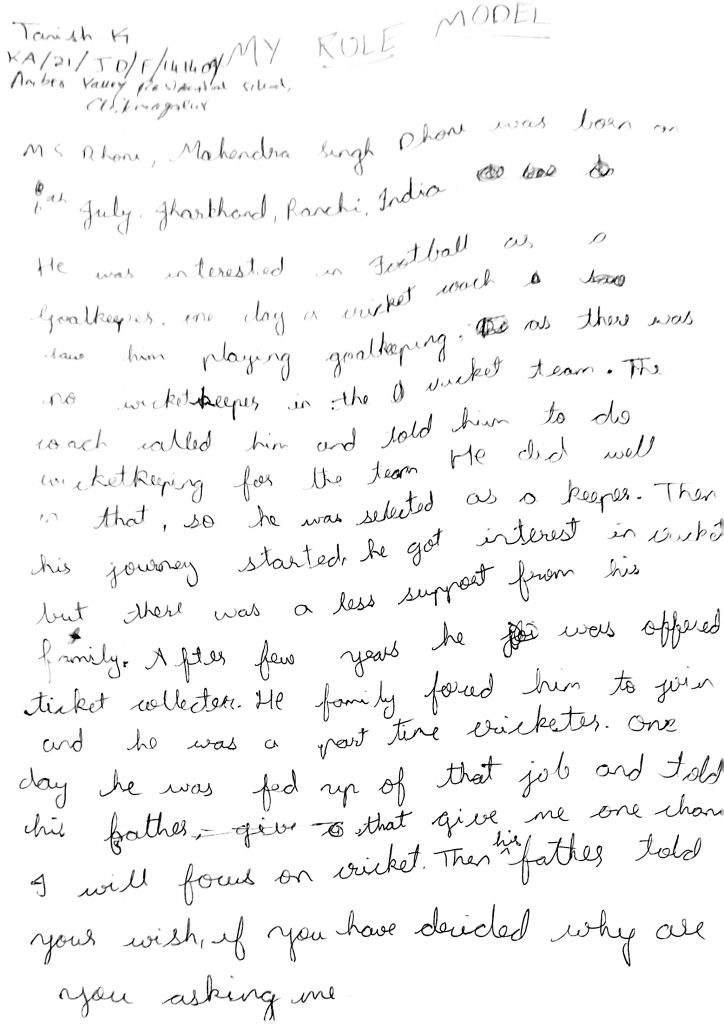 Tanish K
MY ROLE MODEL
KA/21/JD/F/141409
Amber Valley presidential school,
Chikmagalur
MS Dhoni, Mahendra Singh Dhoni was born on
July. Jharkhand, Ranchi, India
He was interested in Football as a
Goalkeeper. one day a cricket coach
saw him playing goalkeeping. as there was
no wicketkeeper in the cricket team. The
coach called him and told him to do
wicketkeeping for the team He did well
in that, so he was selected as a keeper. Then
his journey started, he got interest in cricket
but there was a less support from his
family. After few years he was offered
ticket collecter. He family forced him to join
and he was a part time cricketer. One
day he was fed up of that job and told
his father, that give me one chan
I will focus on cricket. Then his father told
your wish, if you have decided why are
you asking me